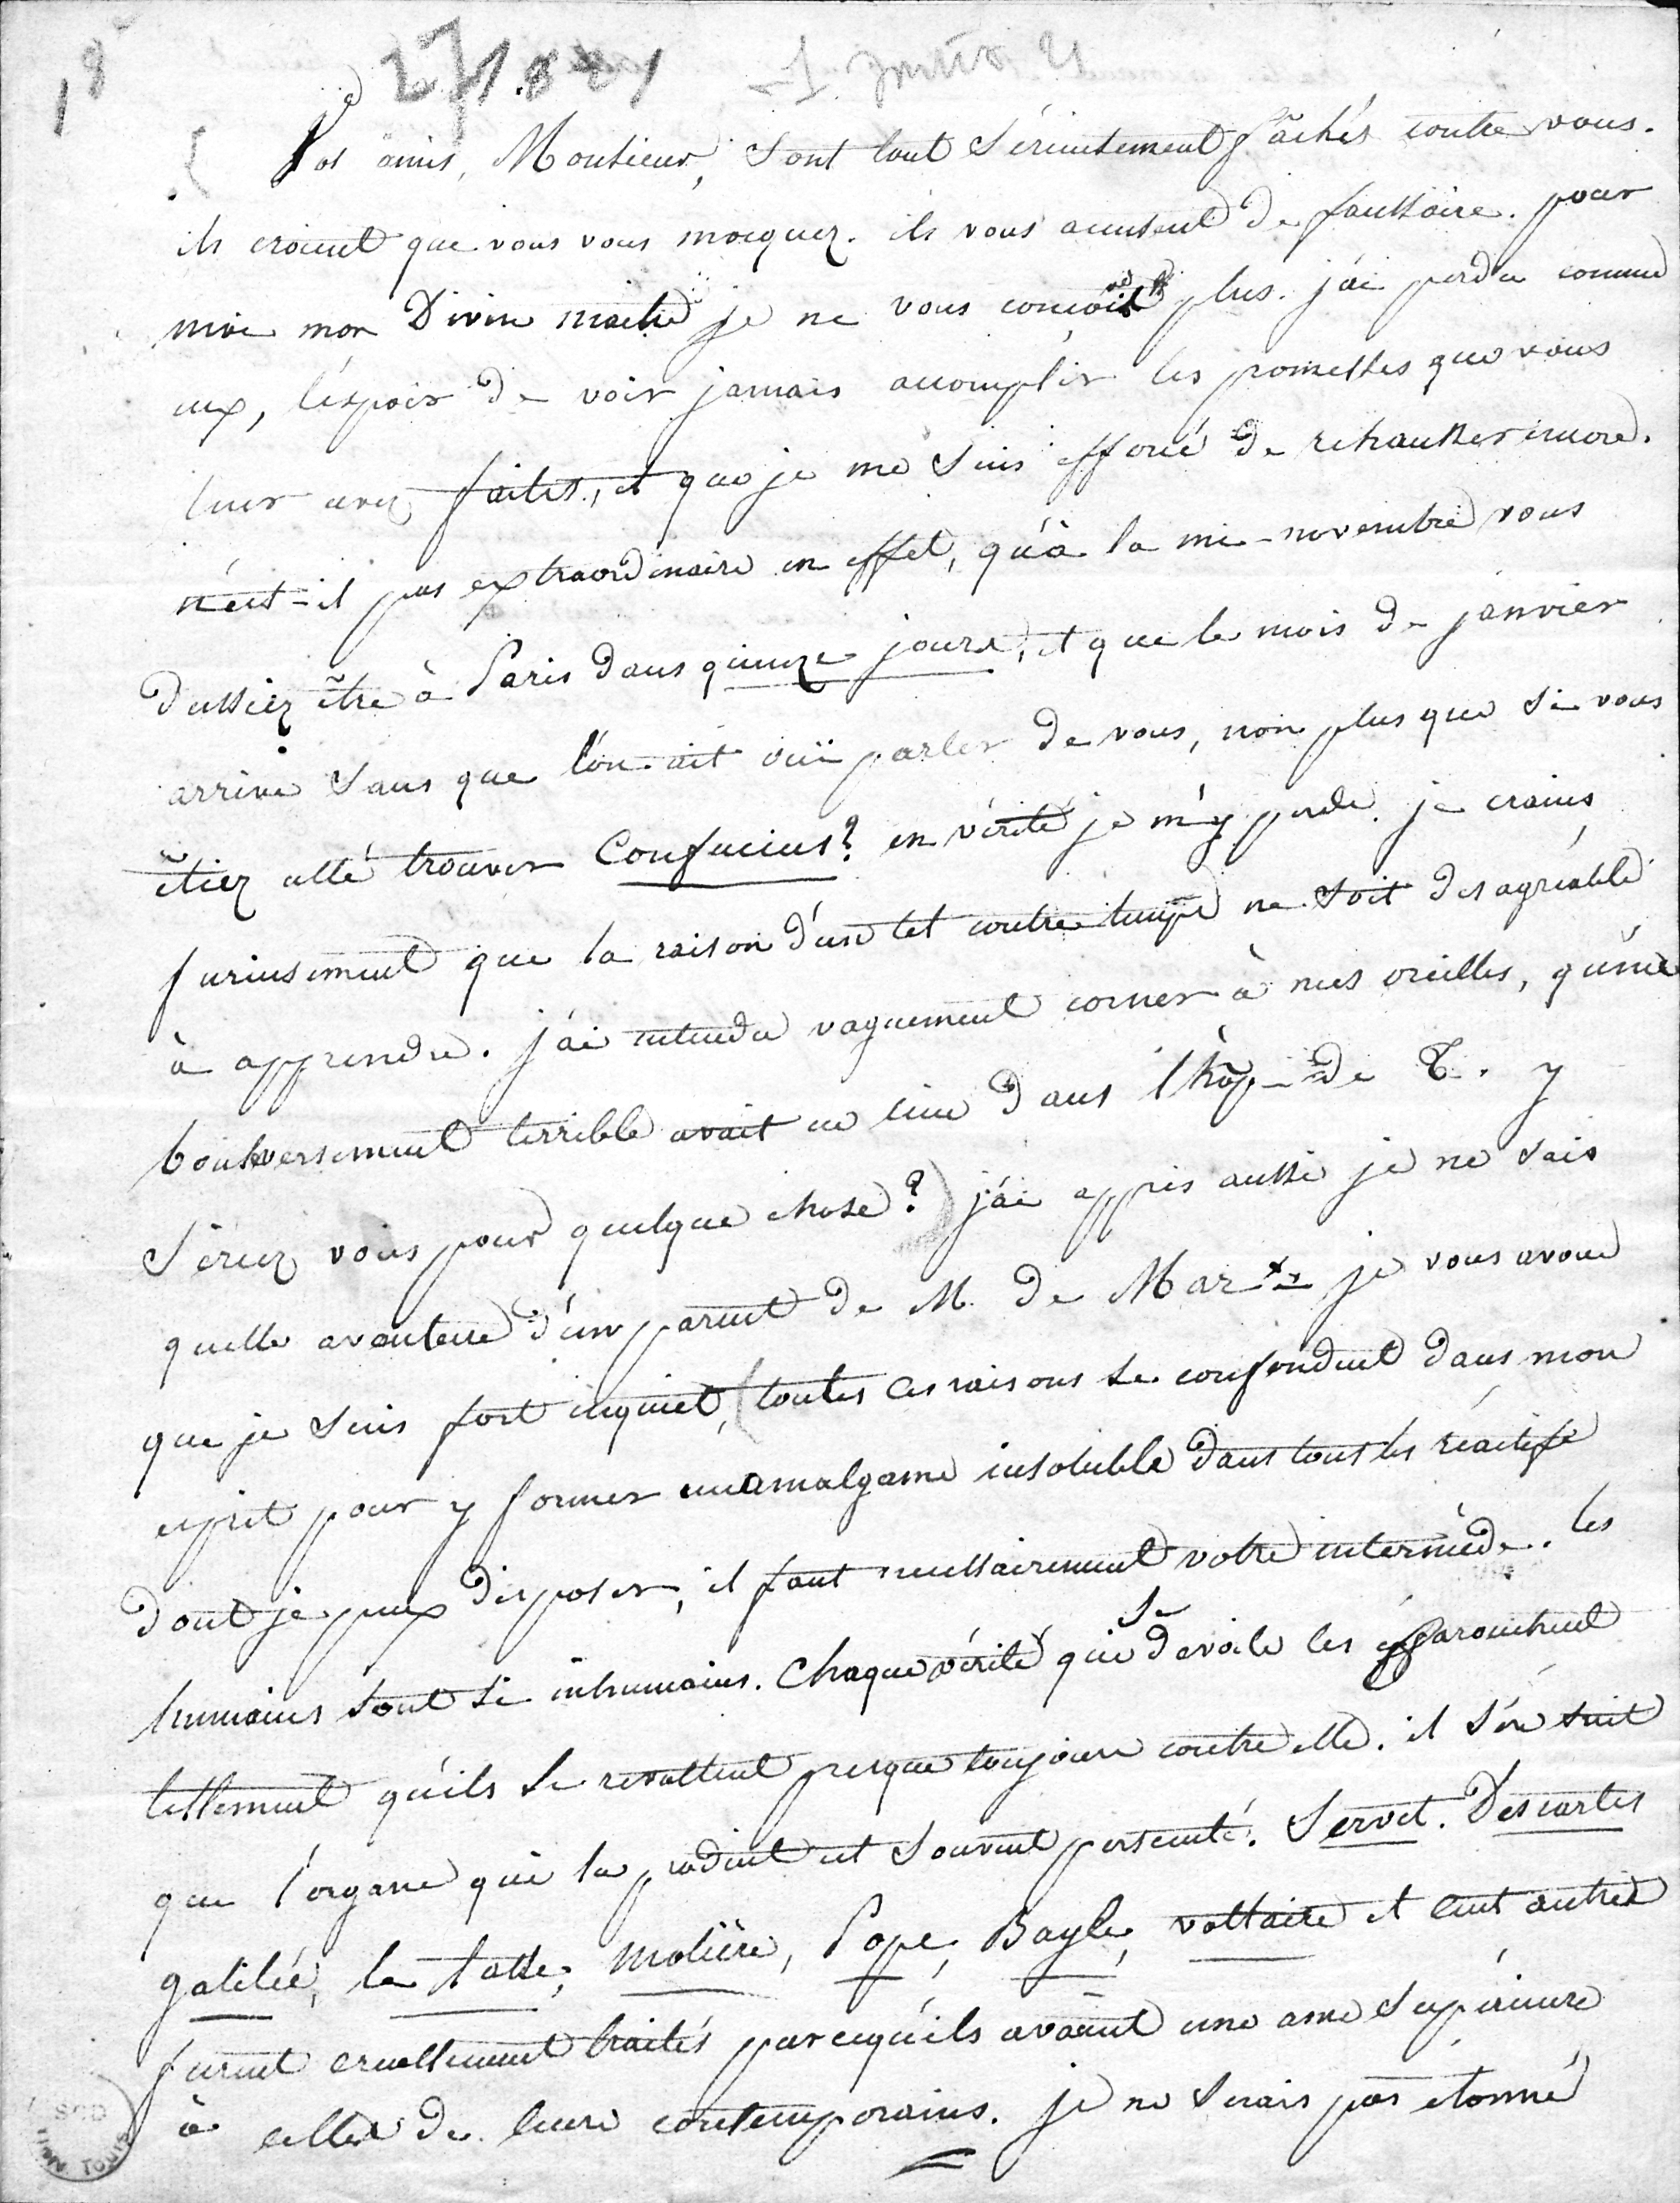 18
27/1.821 1 janvier 21
Vos amis, Monsieur, sont tout sérieusement fâchés contre vous.
ils croient que vous vous mocquez. ils vous accusent de faussaire. pour
moi mon Divin maitre je ne vous conçois plus. j'ai perdu comme
eux, l'espoir de voir jamais accomplir les promesses que vous
leur avez faites, et que je me suis efforcé de rehausser encore.
n'est-il pas extraordinaire en effet, qu'à la mi-novembre vous
dussiez être à Paris dans quinze jours, et que le mois de janvier
arrive sans que l'on ait ouï parler de vous, non plus que si vous
étiez allé trouver Confucius? en vérité je m'y perds. je crains
furieusement que la raison d'un tel contre temps ne soit desagréable
à apprendre. j'ai entendu vaguement corner à mes oreilles, qu'un
boulversement terrible avait eu lieu dans l'hôp. de T. y
seriez vous pour quelque chose? j'ai appris aussi je ne sais
quelle avanture d'un parent de M. de Mar** je vous avoue
que je suis fort inquiet, (toutes ces raisons se confondent dans mon
esprit pour y former un amalgame insoluble dans tous les réactifs
dont je peux disposer, il faut necessairement votre intermède. les
humains sont si inhumains. Chaque vérité qui se devoile les effarouchent
tellement qu'ils se revoltent presque toujours contre elle. il s'en suit
que l'organe qui la produit est souvent persecuté. Servet. Descartes
galilée, le tasse, molière, Pope, Bayle, voltaire et cent autres
furent cruellement traités parcequ'ils avaient une ame supérieure
à celles de leurs contemporains. je ne serais pas étonné
SCD
TOURS